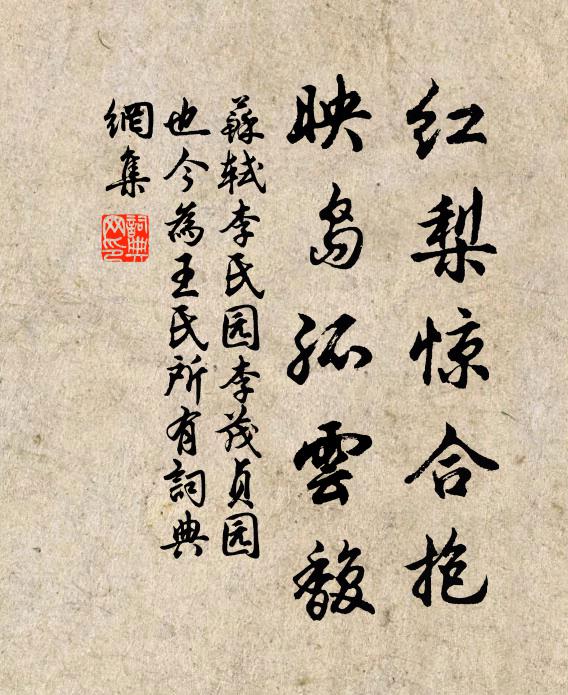 红梨惊合抱
映岛孤雲馥
蘇轼李氏园李茂贞园
也今為王氏所有詞典
網集
詞典
网印